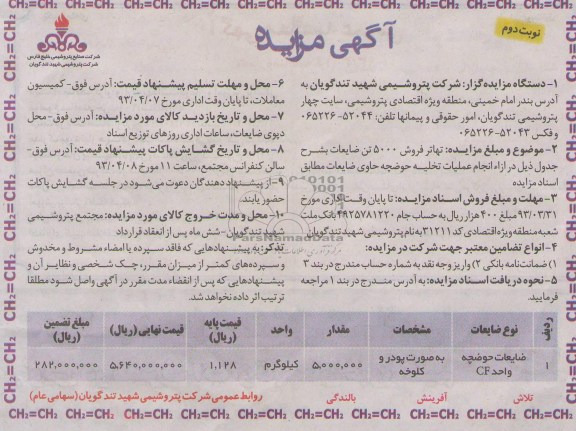 نوبت دوم
آگهی مزایده
شرکت صنایع پتروشیمی خلیج فارس
شرکت پتروشیمی شهید تندگویان
۱- دستگاه مزایده گزار: شرکت پتروشیمی شهید تندگویان به
آدرس بندر امام خمینی، منطقه ویژه اقتصادی پتروشیمی، سایت چهار
پتروشیمی تندگویان، امور حقوقی و پیمانها تلفن: ۵۲۰۴۴-۰۶۵۲۲۶
و فکس ۵۲۰۴۳-۰۶۵۲۲۶
۲- موضوع و مبلغ مزایده: تهاتر فروش ۵۰۰۰ تن ضایعات بشرح
جدول ذیل در ازاء انجام عملیات تخلیه حوضچه حاوی ضایعات مطابق
اسناد مزایده
۳- مهلت و مبلغ فروش اسناد مزایده: تا پایان وقت کاری مورخ
۹۳/۰۳/۳۱ مبلغ ۴۰۰ هزار ریال به حساب جام ۴۹۲۵۷۸۱۲۲۰ بانک ملت
شعبه منطقه ویژه اقتصادی کد ۳۱۲۱۱ به نام پتروشیمی شهید تندگویان
۴- انواع تضامین معتبر جهت شرکت در مزایده:
۱) ضمانت نامه بانکی ۲) واریز وجه نقد به شماره حساب مندرج در بند ۳
۵- نحوه دریافت اسناد مزایده: به آدرس مندرج در بند ۱ مراجعه
فرمایید.
۶- محل و مهلت تسلیم پیشنهاد قیمت: آدرس فوق- کمیسیون
معاملات، تا پایان وقت اداری مورخ ۹۳/۰۴/۰۷
۷- محل و تاریخ بازدید کالای مورد مزایده: آدرس فوق- محل
دپوی ضایعات، ساعات اداری روزهای توزیع اسناد
۸- محل و تاریخ گشایش پاکات پیشنهاد قیمت: آدرس فوق-
سالن کنفرانس مجتمع، ساعت ۱۱ مورخ ۹۳/۰۴/۰۸
۹- از پیشنهاد دهندگان دعوت می‌شود در جلسه گشایش پاکات
حضور یابند.
۱۰- محل و مدت خروج کالای مورد مزایده: مجتمع پتروشیمی
شهید تندگویان- شش ماه پس از انعقاد قرارداد
تذکر: به پیشنهادهایی که فاقد سپرده یا امضاء مشروط و مخدوش
و سپرده‌های کمتر از میزان مقرر، چک شخصی و نظایر آن و
پیشنهادهایی که پس از انقضاء مدت مقرر در آگهی واصل شود مطلقا
ترتیب اثر داده نخواهد شد.
ردیف نوع ضایعات مشخصات مقدار واحد قیمت پایه (ریال) قیمت نهایی (ریال) مبلغ تضمین (ریال)
۱ ضایعات حوضچه واحد CF به صورت پودر و کلوخه ۵،۰۰۰،۰۰۰ کیلوگرم ۱،۱۲۸ ۵،۶۴۰،۰۰۰،۰۰۰ ۲۸۲،۰۰۰،۰۰۰
تلاش آفرینش بالندگی
روابط عمومی شرکت پتروشیمی شهید تندگویان (سهامی عام)
CH2=CH2
ParsNamadData